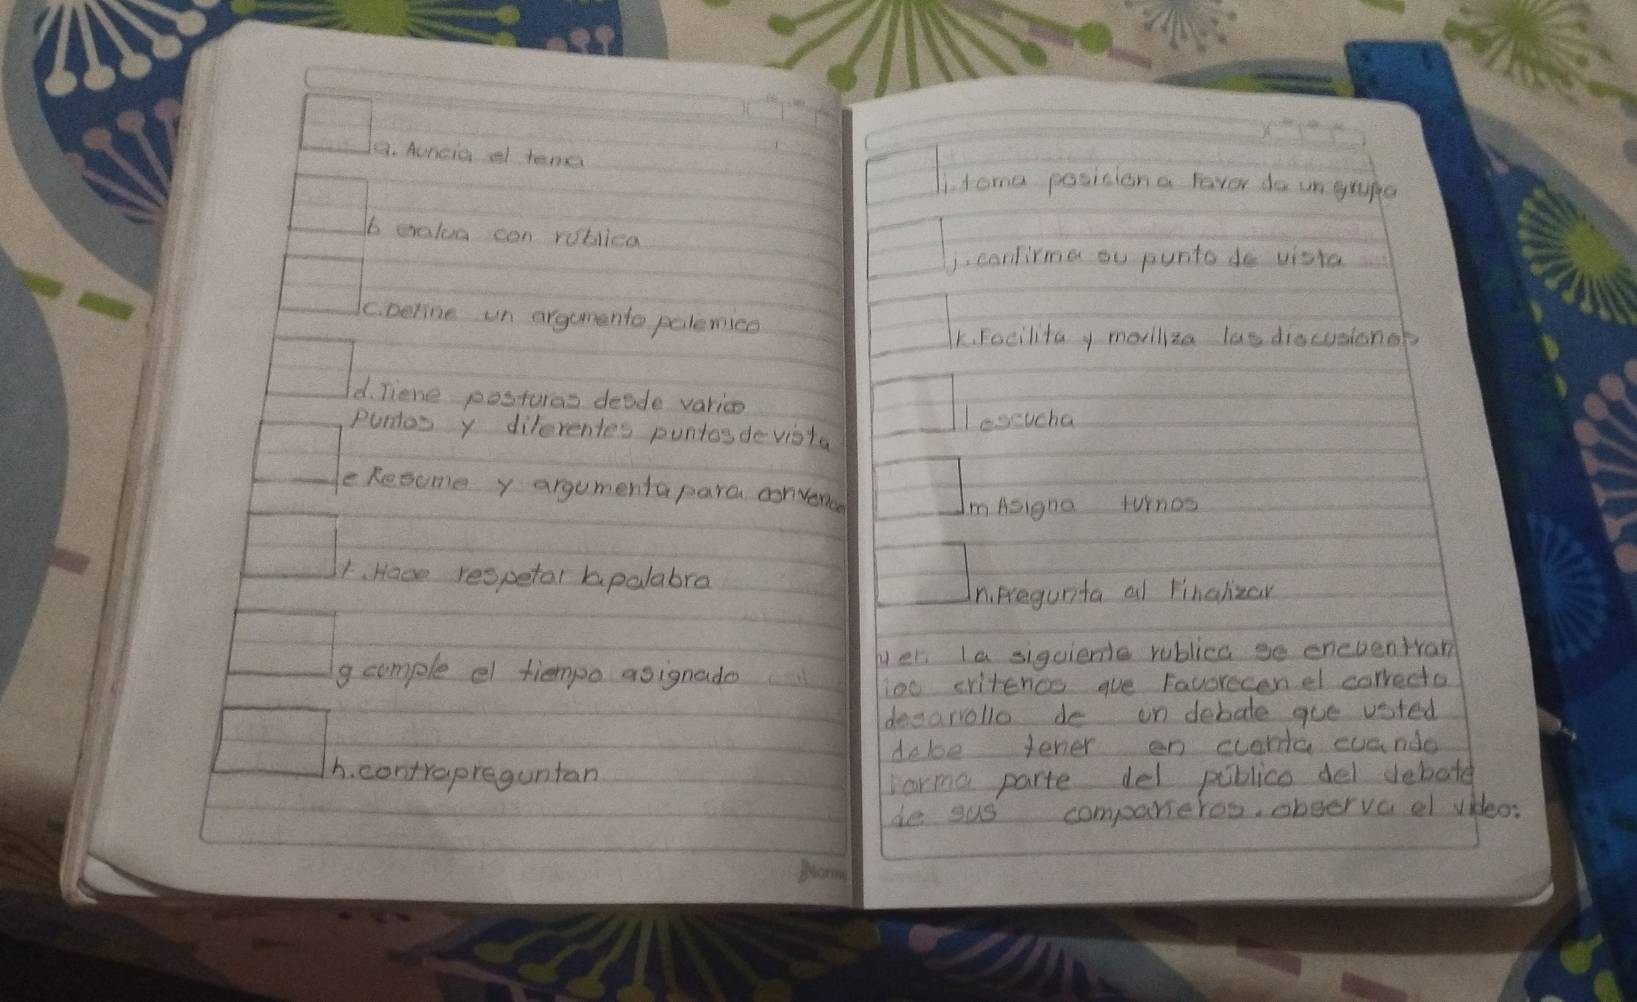 a. Auncia el tema
b evalua con rublica
c. Define un argumento polemico
d. Tiene posturas desde varios
puntos y diferentes puntos de vista
e Resume y argumenta para convencer
f. Hace respetar la palabra
g cumple el tiempo asignado
h. contrapreguntan
Norma
i. toma posicion a favor de un grupo
j. confirma su punto de vista
k. Facilita y moviliza las discusiones
l escucha
m Asigna turnos
n. Pregunta al finalizar
en la siguiente rublica se encuentran
los critenos que favorecen el correcto
desarrollo de un debate que usted
debe tener en cuenta cuando
forma parte del público del debate
de sus compañeros. observa el video: